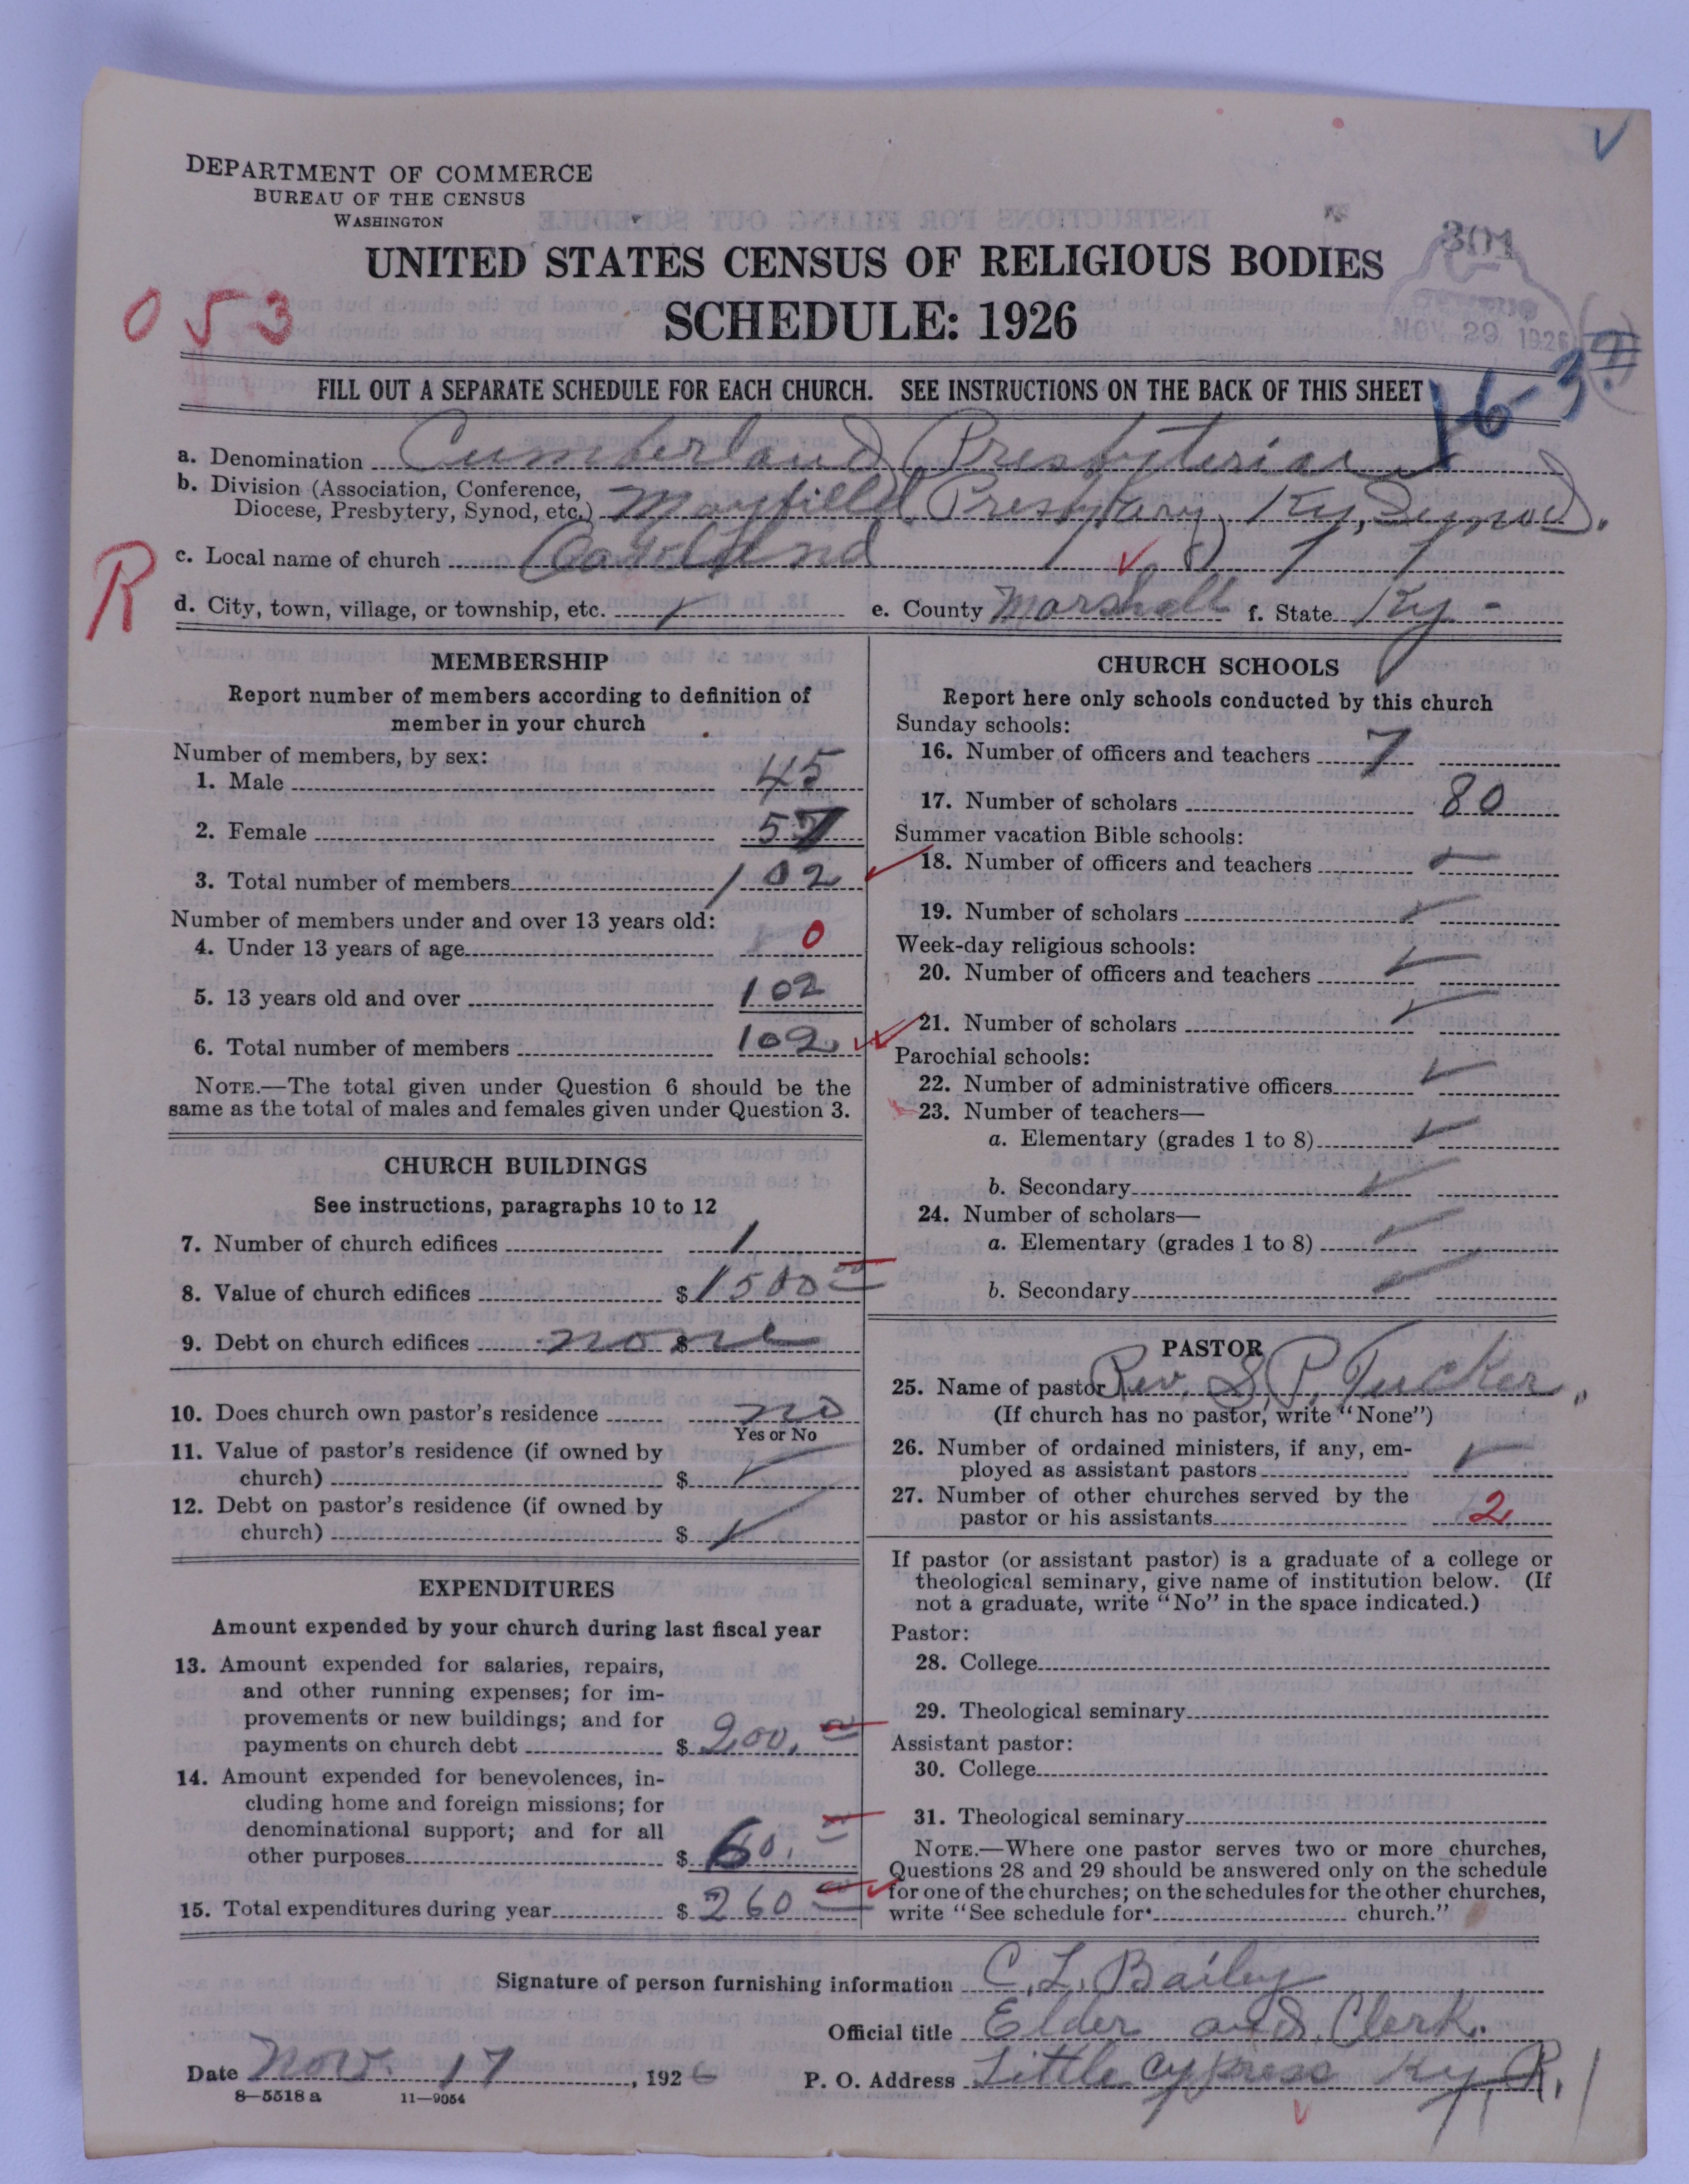 DEPARTMENT OF COMMERCE
BUREAU OF THE CENSUS
WASHINGTON
UNITED STATES CENSUS OF RELIGIOUS BODIES
SCHEDULE: 1926
053
301
NOV 29 1926
16-3
FILL OUT A SEPARATE SCHEDULE FOR EACH CHURCH. SEE INSTRUCTIONS ON THE BACK OF THIS SHEET
a. Denomination Cumberland Presbyterian
b. Division (Association, Conference,
Diocese, Presbytery, Synod, etc.) Mayfield Presbytery, Ky, Synod.
R
c. Local name of church Oakland
d. City, town, village, or township, etc. e. County Marshall f. State Ky-
MEMBERSHIP
Report number of members according to definition of
member in your church
Number of members, by sex:
1. Male 45
2. Female 57
3. Total number of members 102
Number of members under and over 13 years old:
4. Under 13 years of age 0
5. 13 years old and over 102
6. Total number of members 102
NOTE.—The total given under Question 6 should be the
same as the total of males and females given under Question 3.
CHURCH BUILDINGS
See instructions, paragraphs 10 to 12
7. Number of church edifices 1
8. Value of church edifices $1500 00
9. Debt on church edifices none $
10. Does church own pastor's residence no
Yes or No
11. Value of pastor's residence (if owned by
church) $
12. Debt on pastor's residence (if owned by
church) $
EXPENDITURES
Amount expended by your church during last fiscal year
13. Amount expended for salaries, repairs,
and other running expenses; for im-
provements or new buildings; and for
payments on church debt $ 200. 00
14. Amount expended for benevolences, in-
cluding home and foreign missions; for
denominational support; and for all
other purposes $ 60. 00
15. Total expenditures during year $ 260 00
CHURCH SCHOOLS
Report here only schools conducted by this church
Sunday schools:
16. Number of officers and teachers 7
17. Number of scholars 80
Summer vacation Bible schools:
18. Number of officers and teachers
19. Number of scholars
Week-day religious schools:
20. Number of officers and teachers
21. Number of scholars
Parochial schools:
22. Number of administrative officers
23. Number of teachers—
a. Elementary (grades 1 to 8)
b. Secondary
24. Number of scholars—
a. Elementary (grades 1 to 8)
b. Secondary
PASTOR
25. Name of pastor Rev. S. P. Tucker
(If church has no pastor, write "None")
26. Number of ordained ministers, if any, em-
ployed as assistant pastors
27. Number of other churches served by the
pastor or his assistants 2
If pastor (or assistant pastor) is a graduate of a college or
theological seminary, give name of institution below. (If
not a graduate, write "No" in the space indicated.)
Pastor:
28. College
29. Theological seminary
Assistant pastor:
30. College
31. Theological seminary
NOTE.—Where one pastor serves two or more churches,
Questions 28 and 29 should be answered only on the schedule
for one of the churches; on the schedules for the other churches,
write "See schedule for church."
Signature of person furnishing information C. L. Bailey
Official title Elder and Clerk.
Date Nov. 17, 1926 P. O. Address Little Cypress Ky, R. 1
8—5518a 11—9054